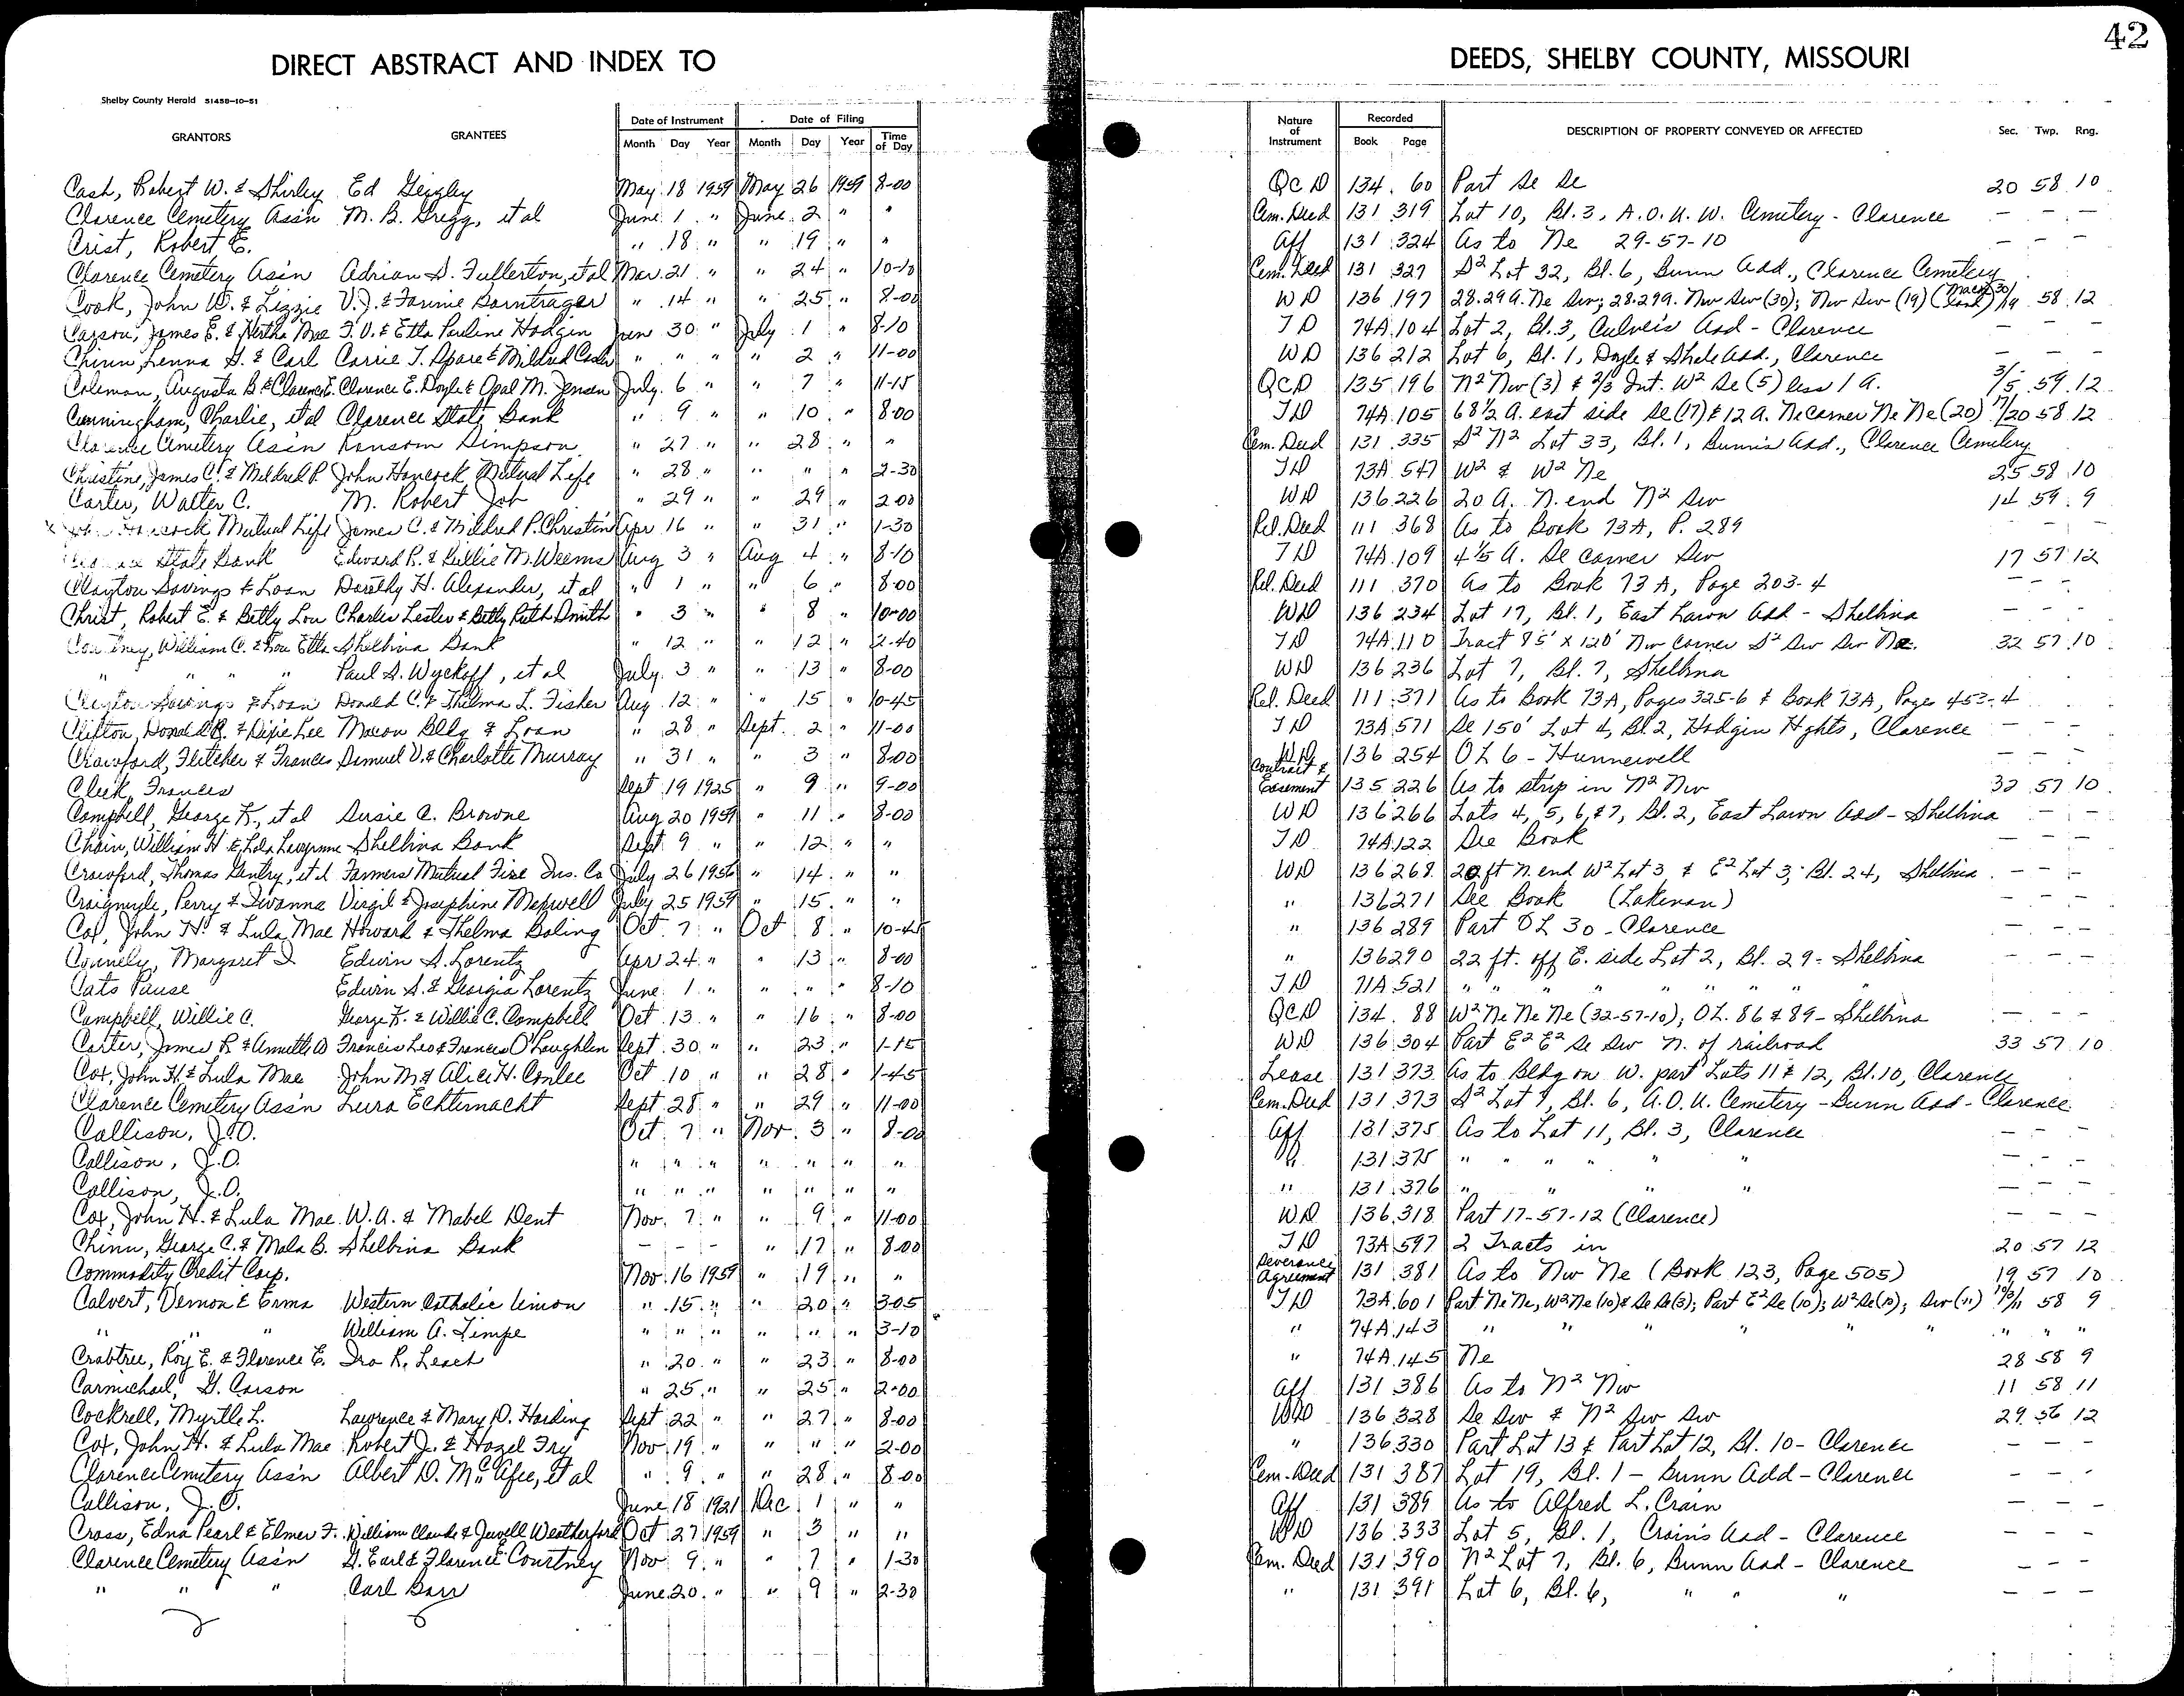 42
DIRECT ABSTRACT AND INDEX TO DEEDS, SHELBY COUNTY, MISSOURI
Shelby County Herald 51458-10-51
GRANTORS GRANTEES Date of Instrument Date of Filing Nature of Instrument Recorded DESCRIPTION OF PROPERTY CONVEYED OR AFFECTED Sec. Twp. Rng.
Month Day Year Month Day Year Time of Day Book Page
Cash, Robert W. & Shirley Ed Geigley May 18 1959 May 26 1959 8-00 QCD 134 60 Part Se Se 20 58 10
Clarence Cemetery Ass'n M. B. Gregg, et al June 1 " June 2 " " Cem. Deed 131 319 Lot 10, Bl. 3, A.O.U.W. Cemetery - Clarence — — —
Crist, Robert E. " 18 " " 19 " " Aff 131 324 As to Ne 29-57-10 — — —
Clarence Cemetery Ass'n Adrian S. Fullerton, et al Mar. 21 " " 24 " 10-10 Cem. Deed 131 327 S² Lot 32, Bl. 6, Bunn Add., Clarence Cemetery
Cook, John W. & Lizzie V.J. & Fannie Borntrager " 14 " " 25 " 8-00 WD 136 197 28.29 A. Ne Sw; 28.29 A. Nw Sw (30); Nw Sw (19) 30/19 58 12
Carson, James E. & Hertha Mae F. V. & Etta Pauline Hodgin June 30 " July 1 " 8-10 TD 74A 104 Lot 2, Bl. 3, Culver's Add - Clarence — — —
Chinn, Lenna G. & Carl Carrie T. Spare & Mildred " " " " 2 " 11-00 WD 136 212 Lot 6, Bl. 1, Doyle & Shale Add., Clarence — — —
Coleman, Augusta B. & Clarence E. Clarence E. Doyle & Opal M. Jensen July 6 " " 7 " 11-15 QCD 135 196 N² Nw (3) & 2/3 Int. W² Se (5) less 1 A. 3/5 59 12
Cunningham, Charlie, et al Clarence State Bank " 9 " " 10 " 8-00 TD 74A 105 68 1/2 A. east side Se (17) & 12 A. Ne corner Ne Ne (20) 17/20 58 12
Clarence Cemetery Ass'n Ransom Simpson " 27 " " 28 " " Cem. Deed 131 335 S² N² Lot 33, Bl. 1, Bunn's Add., Clarence Cemetery
Christine, James C. & Mildred P. John Hancock Mutual Life " 28 " " " " 2-30 TD 73A 547 W² & W² Ne 25 58 10
Carter, Walter C. M. Robert Job " 29 " " 29 " 2-00 WD 136 226 20 A. N. end N² Sw 14 59 9
John Hancock Mutual Life James C. & Mildred P. Christine Apr 16 " " 31 " 1-30 Rel. Deed 111 368 As to Book 73A, P. 289 — — —
State Bank Edward R. & Lillie M. Weems Aug 3 " Aug 4 " 8-10 TD 74A 109 4 1/5 A. Se corner Sw 17 57 12
Clayton Savings & Loan Dorothy H. Alexander, et al " 1 " " 6 " 8-00 Rel. Deed 111 370 As to Book 73A, Page 203-4 — — —
Christ, Robert E. & Betty Lou Charles Lester & Betty Ruth Smith " 3 " " 8 " 10-00 WD 136 234 Lot 17, Bl. 1, East Lawn Add - Shelbina — — —
Courtney, William C. & Lou Etta Shelbina Bank " 12 " " 12 " 2-40 TD 74A 110 Tract 85' x 120' Nw corner S² Sw Sw Ne 32 57 10
" " " Paul S. Wyckoff, et al July 3 " " 13 " 8-00 WD 136 236 Lot 7, Bl. 7, Shelbina — — —
Clayton Savings & Loan Donald C. & Thelma L. Fisher Aug 12 " " 15 " 10-45 Rel. Deed 111 371 As to Book 73A, Pages 325-6 & Book 73A, Pages 453-4
Clifton, Donald B. & Dixie Lee Macon Bldg & Loan " 28 " Sept. 2 " 11-00 TD 73A 571 Se 150' Lot 4, Bl 2, Hodgin Hghts, Clarence — — —
Crawford, Fletcher & Frances Samuel V. & Charlotte Murray " 31 " " 3 " 8-00 WD 136 254 OL 6 - Hunnewell — — —
Cleek, Frances Sept 19 1925 " 9 " 9-00 Contract & Easement 135 226 As to strip in N² Nw 32 57 10
Campbell, George K., et al Susie C. Browne Aug 20 1959 " 11 " 8-00 WD 136 266 Lots 4, 5, 6, & 7, Bl. 2, East Lawn Add - Shelbina — — —
Chain, William H. & Lola Shelbina Bank Sept 9 " " 12 " " TD 74A 122 See Book — — —
Crawford, Thomas Gentry, et al Farmers Mutual Fire Ins. Co July 26 1956 " 14 " " WD 136 268 20 ft N. end W² Lot 3, & E² Lot 3, Bl. 24, Shelbina — — —
Craigmyle, Perry & Iwanna Virgil & Josephine Maxwell July 25 1959 " 15 " " " 136 271 See Book (Lakenan) — — —
Cox, John H. & Lula Mae Howard & Thelma Boling Oct. 7 " Oct 8 " 10-45 " 136 289 Part OL 30 - Clarence — — —
Connely, Margaret I Edwin S. Lorentz Apr 24 " " 13 " 8-00 " 136 290 22 ft. off E. side Lot 2, Bl. 29 - Shelbina — — —
Cats Pause Edwin S. & Georgia Lorentz June 1 " " " " 8-10 TD 71A 521 " " " " " " "
Campbell, Willie C. George K. & Willie C. Campbell Oct 13 " " 16 " 8-00 QCD 134 88 W² Ne Ne Ne (32-57-10); OL. 86 & 89 - Shelbina — — —
Carter, James R. & Annette D Francis Leo & Frances O'Laughlin Sept. 30 " " 23 " 1-15 WD 136 304 Part E² E² Se Sw N. of railroad 33 57 10
Cox, John H. & Lula Mae John M & Alice H. Conlee Oct 10 " " 28 " 1-45 Lease 131 373 As to Bldg on W. part Lots 11 & 12, Bl. 10, Clarence
Clarence Cemetery Ass'n Lura Echternacht Sept. 28 " " 29 " 11-00 Cem. Deed 131 373 S² Lot 7, Bl. 6, A.O.U. Cemetery - Bunn Add - Clarence
Callison, J.O. Oct. 7 " Nov. 3 " 8-00 Aff 131 375 As to Lot 11, Bl. 3, Clarence — — —
Callison, J.O. " " " " " " " 131 375 " " " " " " — — —
Callison, J.O. " " " " " " " " 131 376 " " " " — — —
Cox, John H. & Lula Mae W. A. & Mabel Dent Nov. 7 " " 9 " 11-00 WD 136 318 Part 17-57-12 (Clarence) — — —
Chinn, George C. & Mala B. Shelbina Bank — — — " 17 " 8-00 TD 73A 597 2 Tracts in 20 57 12
Commodity Credit Corp. Nov. 16 1959 " 19 " " Severance Agreement 131 381 As to Nw Ne (Book 123, Page 505) 19 57 10
Calvert, Vernon & Erma Western Catholic Union " 15 " " 20 " 3-05 TD 73A 601 Part Ne Ne, W² Ne (10) & Se Se (3); Part E² Se (10); W² Se (10); Sw (11) 10/3/11 58 9
" " " William A. Timpe " " " " " " 3-10 " 74A 143 " " " " " " " " "
Crabtree, Roy E. & Florence E. Ira R. Leach " 20 " " 23 " 8-00 " 74A 145 Ne 28 58 9
Carmichael, G. Carson " 25 " " 25 " 2-00 Aff 131 386 As to N² Nw 11 58 11
Cockrell, Myrtle L. Lawrence & Mary D. Harding Sept 22 " " 27 " 8-00 WD 136 328 Se Sw & N² Sw Sw 29 56 12
Cox, John H. & Lula Mae Robert J. & Hazel Fry Nov 19 " " " " 2-00 " 136 330 Part Lot 13 & Part Lot 12, Bl. 10 - Clarence — — —
Clarence Cemetery Ass'n Albert D. McAfee, et al " 9 " " 28 " 8-00 Cem. Deed 131 387 Lot 19, Bl. 1 - Bunn Add - Clarence — — —
Callison, J.O. June 18 1921 Dec 1 " " Aff 131 389 As to Alfred L. Crain — — —
Cross, Edna Pearl & Elmer F. William Claude & Jewell Weatherford Oct 27 1959 " 3 " " WD 136 333 Lot 5, Bl. 1, Crain's Add - Clarence — — —
Clarence Cemetery Ass'n G. Earl & Florence Courtney Nov 9 " " 7 " 1-30 Cem. Deed 131 390 N² Lot 7, Bl. 6, Bunn Add - Clarence — — —
" " " Carl Barr June 20 " " 9 " 2-30 " 131 391 Lot 6, Bl. 6, " " " — — —